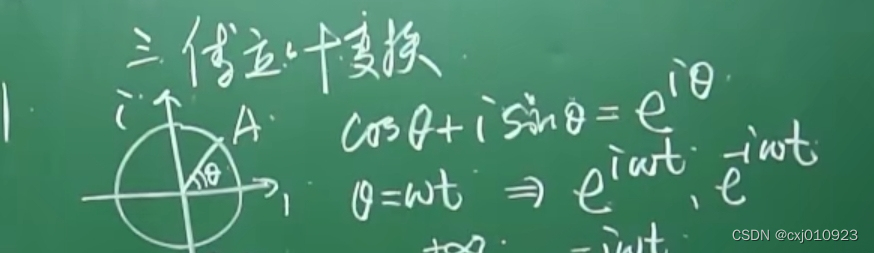 三.傅立叶变换
i
A
θ
1
cosθ+i sinθ=e^{iθ}
θ=ωt ⇒ e^{iωt}, e^{-iωt}
+∞ -iωt
CSDN @cxj010923